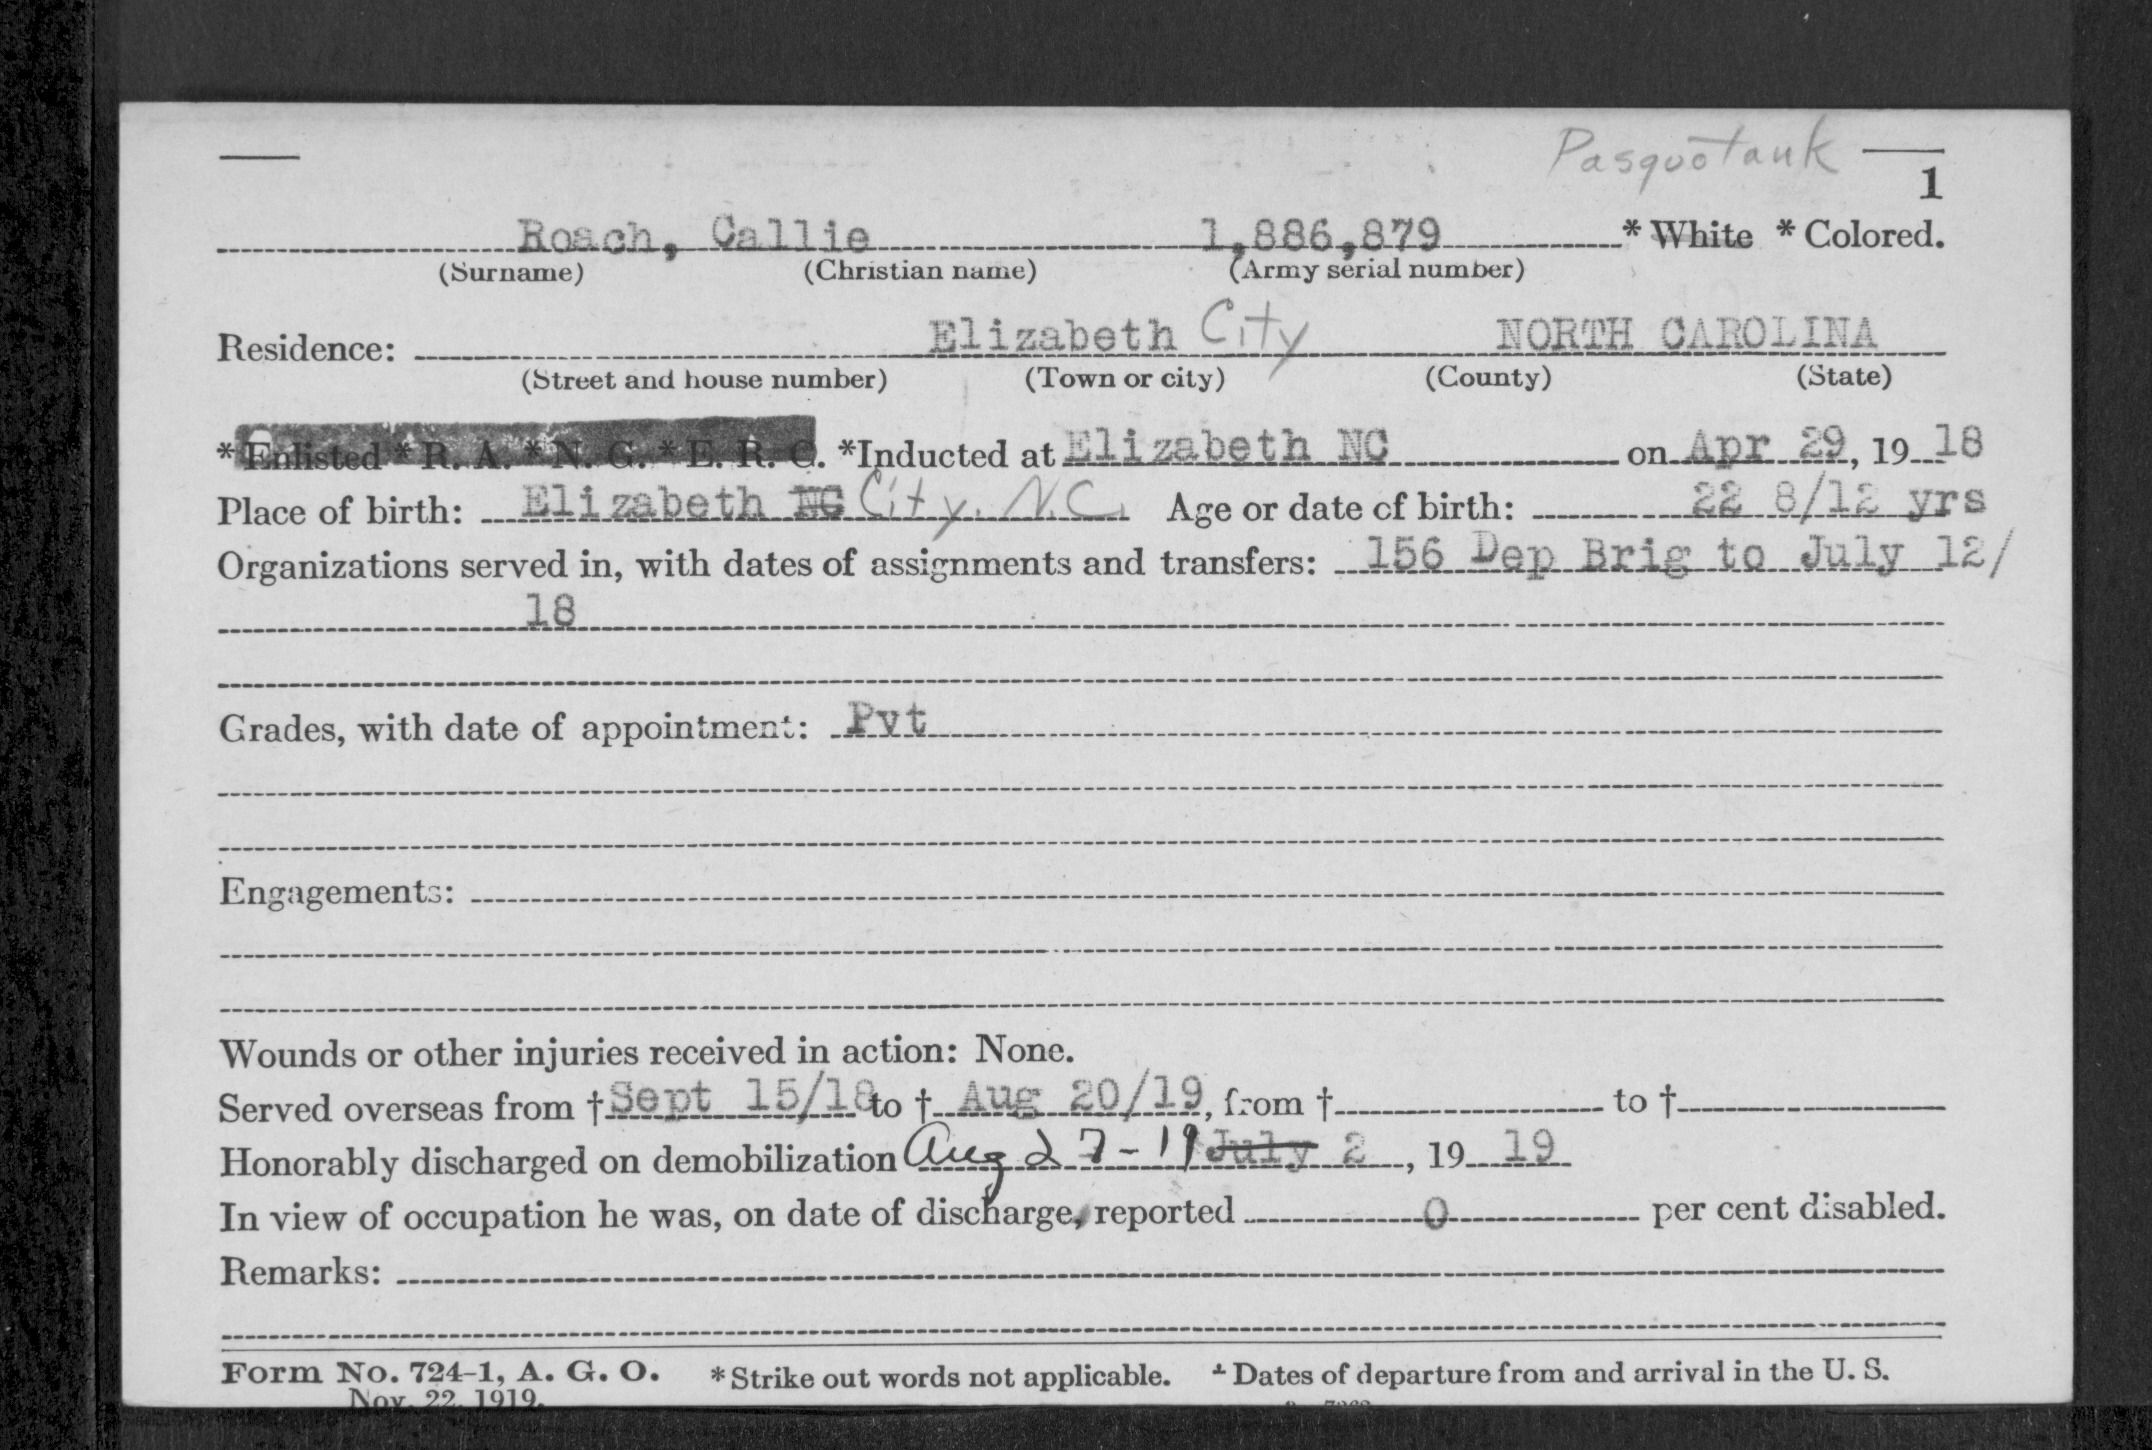 Pasquotank
1
Roach, Callie 1,886,879 * White * Colored.
(Surname) (Christian name) (Army serial number)
Residence: Elizabeth City NORTH CAROLINA
(Street and house number) (Town or city) (County) (State)
*Enlisted *R. A. *N. G. *E. R. C. *Inducted at Elizabeth NC on Apr 29, 19 18
Place of birth: Elizabeth NC City, N.C. Age or date of birth: 22 8/12 yrs
Organizations served in, with dates of assignments and transfers: 156 Dep Brig to July 12/
18
Grades, with date of appointment: Pvt
Engagements:
Wounds or other injuries received in action: None.
Served overseas from † Sept 15/18 to † Aug 20/19, from † to †
Honorably discharged on demobilization Aug 27-19 July 2, 19 19
In view of occupation he was, on date of discharge, reported 0 per cent disabled.
Remarks:
Form No. 724-1, A. G. O. *Strike out words not applicable. † Dates of departure from and arrival in the U. S.
Nov. 22, 1919.